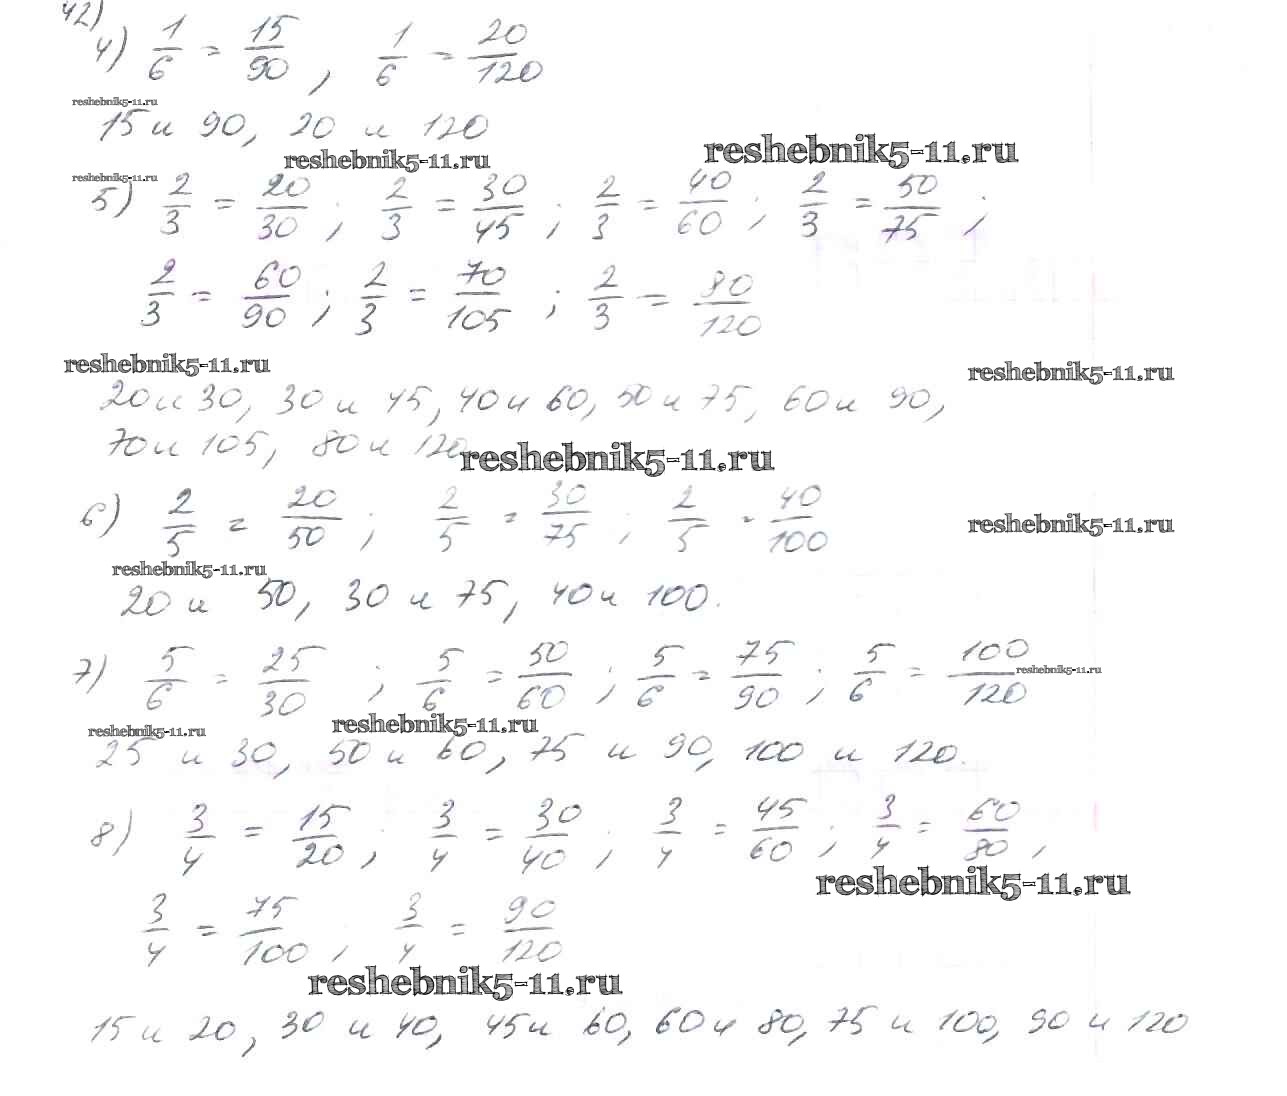 42)
4) 1/6 = 15/90, 1/6 = 20/120
reshebnik5-11.ru
15 и 90, 20 и 120
reshebnik5-11.ru reshebnik5-11.ru
reshebnik5-11.ru
5) 2/3 = 20/30; 2/3 = 30/45; 2/3 = 40/60; 2/3 = 50/75;
2/3 = 60/90; 2/3 = 70/105; 2/3 = 80/120
reshebnik5-11.ru reshebnik5-11.ru
20 и 30, 30 и 45, 40 и 60, 50 и 75, 60 и 90,
70 и 105, 80 и 120
reshebnik5-11.ru
6) 2/5 = 20/50; 2/5 = 30/75; 2/5 = 40/100
reshebnik5-11.ru
reshebnik5-11.ru
20 и 50, 30 и 75, 40 и 100.
7) 5/6 = 25/30; 5/6 = 50/60; 5/6 = 75/90; 5/6 = 100/120
reshebnik5-11.ru
reshebnik5-11.ru reshebnik5-11.ru
25 и 30, 50 и 60, 75 и 90, 100 и 120.
8) 3/4 = 15/20; 3/4 = 30/40; 3/4 = 45/60; 3/4 = 60/80,
reshebnik5-11.ru
3/4 = 75/100; 3/4 = 90/120
reshebnik5-11.ru
15 и 20, 30 и 40, 45 и 60, 60 и 80, 75 и 100, 90 и 120